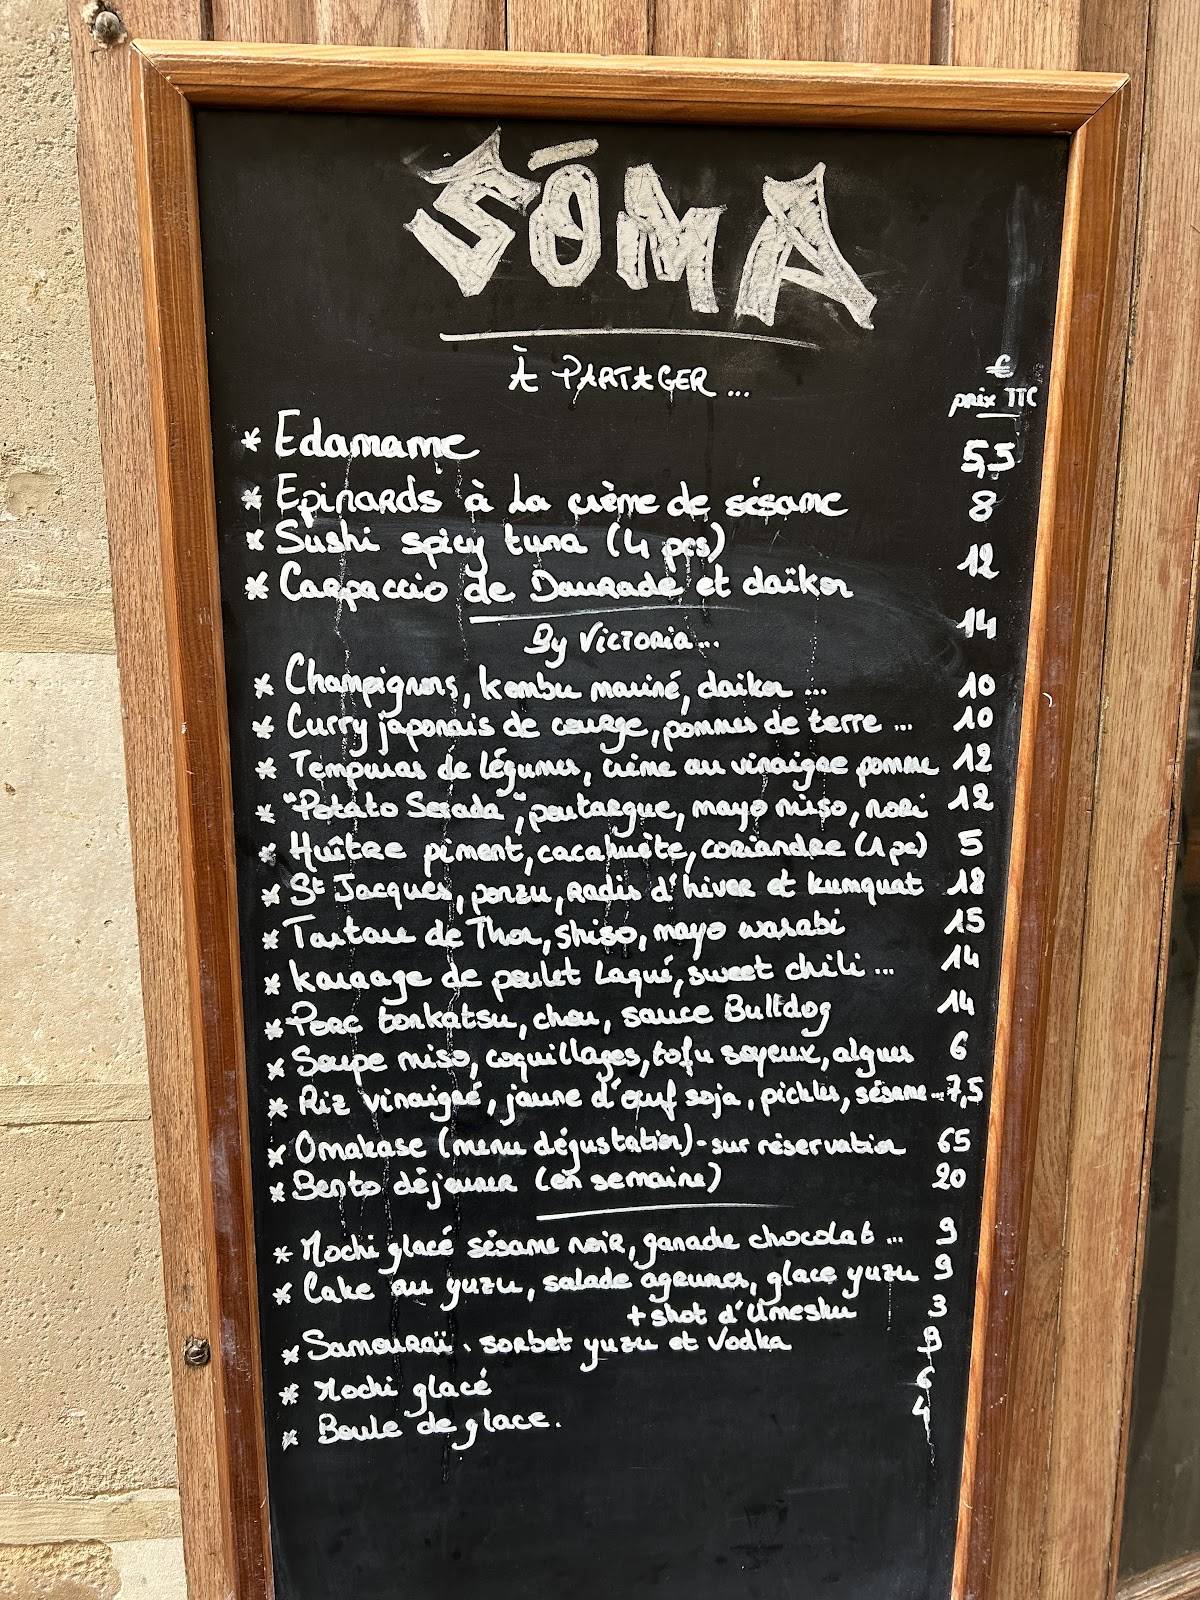 SŌMA
À PARTAGER...
€
prix TTC
* Edamame 5,5
* Epinards à la crème de sésame 8
* Sushi spicy tuna (4 pcs) 12
* Carpaccio de Daurade et daïkon 14
By Victoria...
* Champignons, kombu mariné, daikon ... 10
* Curry japonais de courge, pommes de terre ... 10
* Tempuras de légumes, crème au vinaigre pomme 12
* "Potato Serada", poutargue, mayo miso, nori 12
* Huître piment, cacahuète, coriandre (1 pc) 5
* St Jacques, ponzu, radis d'hiver et kumquat 18
* Tartare de Thon, shiso, mayo wasabi 15
* Karaage de poulet laqué, sweet chili ... 14
* Porc tonkatsu, chou, sauce Bulldog 14
* Soupe miso, coquillages, tofu soyeux, algues 6
* Riz vinaigré, jaune d'œuf soja, pickles, sésame... 7,5
* Omakase (menu dégustation) - sur réservation 65
* Bento déjeuner (en semaine) 20
* Mochi glacé sésame noir, ganache chocolat ... 9
* Cake au yuzu, salade agrumes, glace yuzu 9
+ shot d'Umeshu 3
* Samouraï. sorbet yuzu et Vodka 9
* Mochi glacé 6
* Boule de glace. 4